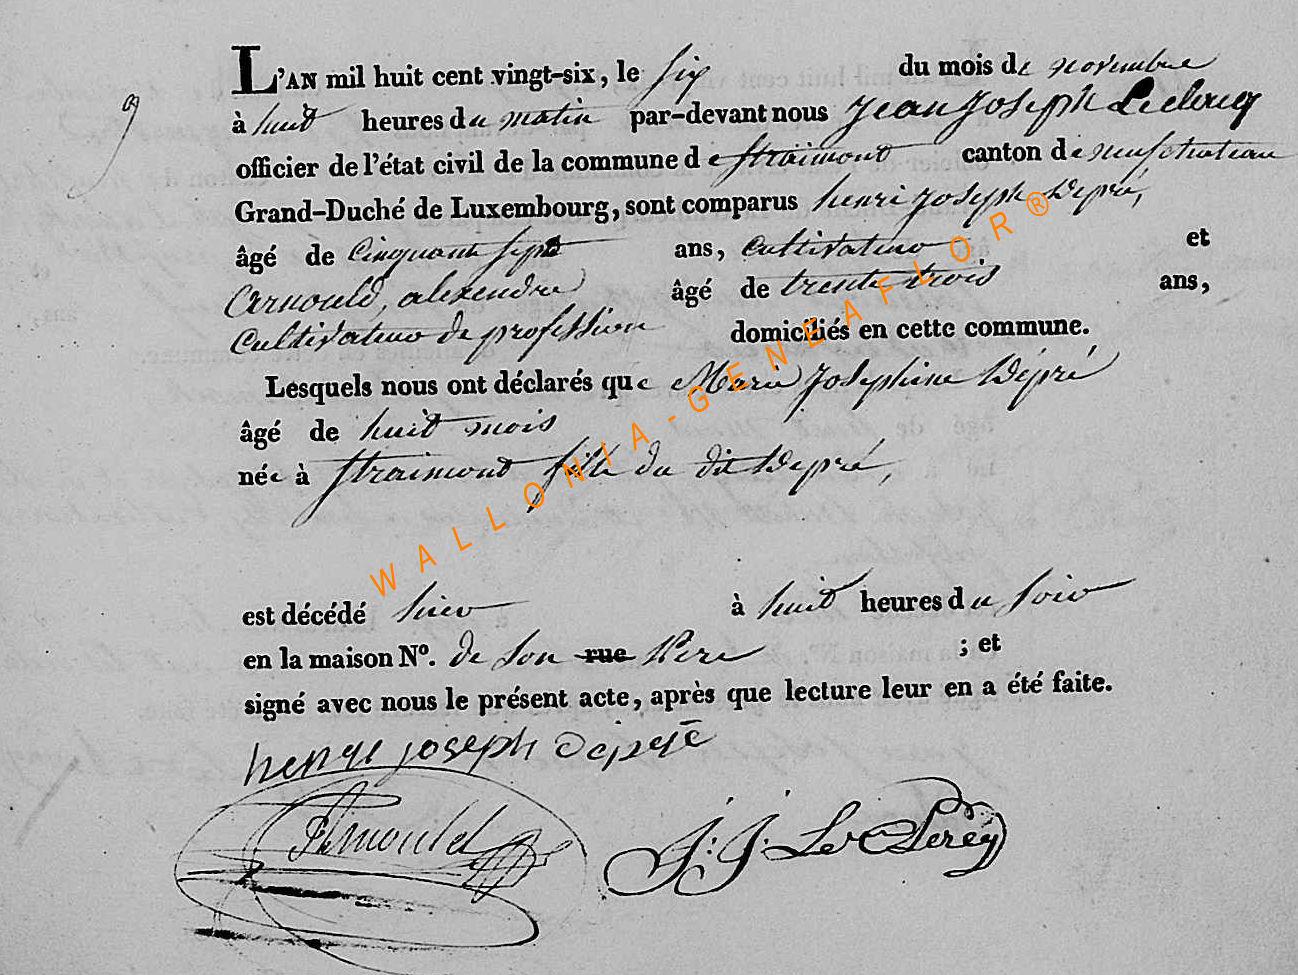 9
L'AN mil huit cent vingt-six, le six du mois de novembre
à huit heures du matin par-devant nous Jean Joseph Leclercq
officier de l'état civil de la commune de Straimont canton de neufchateau
Grand-Duché de Luxembourg, sont comparus henri Joseph Depré,
âgé de Cinquant sept ans, Cultivateur et
Arnould, alexendre âgé de trente trois ans,
Cultivateur de profession domiciliés en cette commune.
Lesquels nous ont déclarés que Marie Josephine Dépré
âgé de huit mois
née à Straimont fille du dit Depré,
est décédé hier à huit heures du soir
en la maison N°. de son rue Pere ; et
signé avec nous le présent acte, après que lecture leur en a été faite.
henri joseph
Arnould J: J: Le Clercq
WALLONIA-GENEAFLOR®